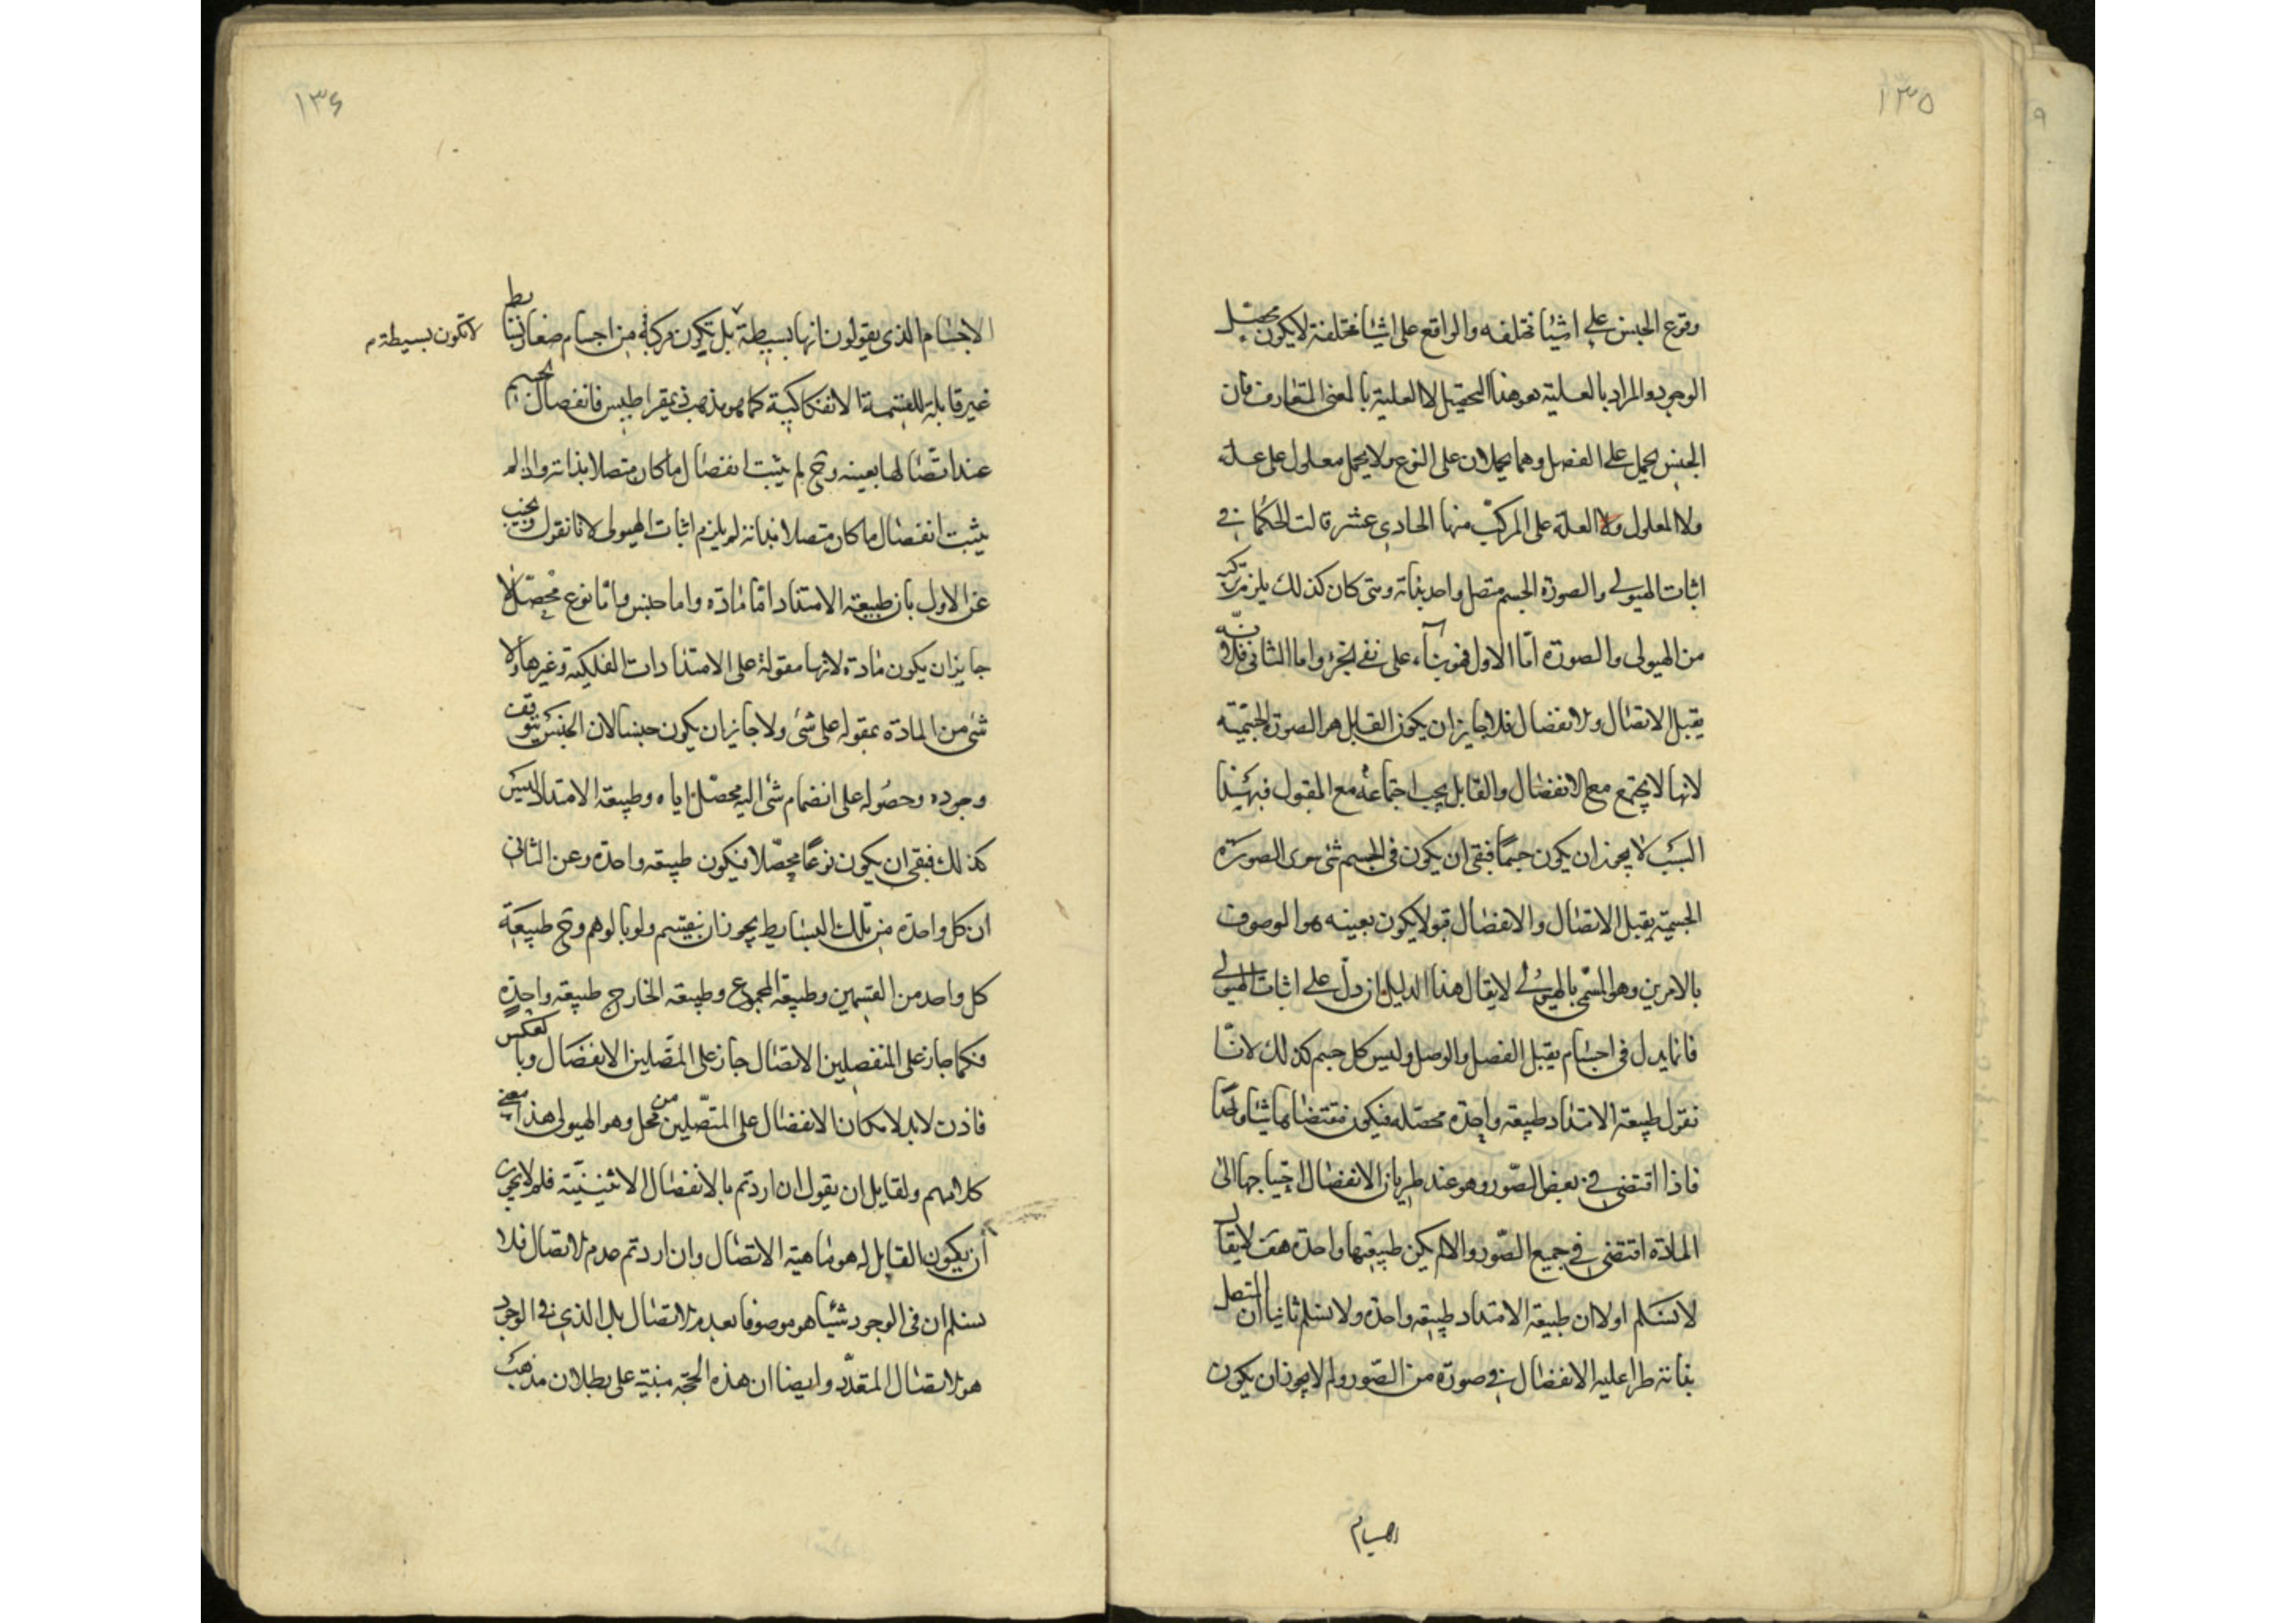 ١٣٥
وقوع الجنس على اشيا مختلفه والواقع على اشيا مختلفة لا يكون محصل
الوجود والمراد بالعلية هو هذا التحصيل لا العلية بالمعنى المتعارف فان
الجنس يحمل على الفصل وهما يحملان على النوع ولا يحمل معلول على علة
ولا المعلول ولا العلة على المركب منها الحادى عشر قالت الحكما فى
اثبات الهيولى والصورة الجسم متصل واحد بذاته ومتى كان كذلك يلزم تركبه
من الهيولى والصورة امّا الاول فهو بناء على نفى الجزء واما الثانى فلانّه
يقبل الاتصال والانفصال فلا جايز ان يكون القابل هو الصورة الجسميّة
لانها لا تجتمع مع الانفصال والقابل يجب اجتماعه مع المقبول فبهذا
السبب لا يجوز ان يكون جسمًا فبقى ان يكون فى الجسم شئ سوى الصورة
الجسمية يقبل الاتصال والانفصال قبولا يكون بعينه هو الموصوف
بالامرين وهو المسمّى بالهيولى لا يقال هذا الدليل ان دلّ على اثبات الهيولى
فانما يدل فى اجسام يقبل الفصل والوصل وليس كل جسم كذلك لانّا
نقول طبيعة الامتداد طبيعة واحدة محصله فيكون مقتضاها شيئا واحدًا
فاذا اقتضى فى بعض الصّور وهو عند طريان الانفصال احتياجها الى
المادة اقتضى فى جميع الصّور والا لم يكن طبيعتها واحدة هف لا يقال
لا نسلم اولا ان طبيعة الامتداد طبيعة واحدة ولا نسلم ثانيا ان المتصل
بذاته طرا عليه الانفصال فى صورة من الصّور ولم لا يجوز ان يكون
الاجسام
١٣۶
الاجسام الذى يقولون انها بسيطة بل تكون مركبة من اجسام صغار بسايط
لا تكون بسيطة م
غير قابلة للقسمة الانفكاكية كما هو مذهب ذيمقراطيس فانفصال الجسم
عند اتّصالها بعينه وح لم يثبت انفصال ما كان متصلا بذاته واذا لم
يثبت انفصال ما كان متصلا بذاته لم يلزم اثبات الهيولى لانا نقول ونجيب
عن الاول بان طبيعة الامتداد امّا مادّه واما جنس وامّا نوع محصّل لا
جايز ان يكون مادة لانها مقولة على الامتدادات الفلكية وغيرها ولا
شئ من المادة بمقوله على شئ ولا جايز ان يكون جنسا لان الجنس يتوقف
وجوده وحصوله على انضمام شئ اليه محصّل اياه وطبيعة الامتداد ليس
كذلك فبقى ان يكون نوعًا محصّلا فيكون طبيعه واحدة وعن الثانى
ان كل واحدة من تلك البسايط يجوز ان ينقسم ولو بالوهم وح طبيعة
كل واحد من القسمين وطبيعة المجموع وطبيعة الخارج طبيعة واحدة
فكما جاز على المنفصلين الاتصال جاز على المتّصلين الانفصال وبالعكس
فاذن لابد لامكان الانفصال على المتّصلين من محل وهو الهيولى هذا معنى
كلامهم ولقايل ان يقول ان اردتم بالانفصال الاثنينيّة فلم لا يجوز
ان يكون القابل له هو ماهية الاتصال وان اردتم عدم الاتصال فلا
نسلم ان فى الوجود شيئا هو موصوفا بعدم الاتصال بل الذى فى الوجود
هو الاتصال المتعدّد وايضا ان هذه الحجّه مبنيّة على بطلان مذهب